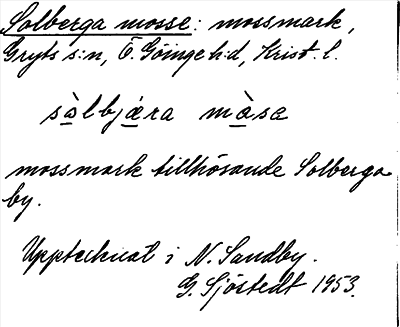 Solberga mosse: mossmark,
Gryts s:n, Ö. Göinge h:d, Krist. l.
sàlbjæra màsa
mossmark tillhörande Solberga
by.
Upptecknat i N. Sandby.
G. Sjöstedt 1953.